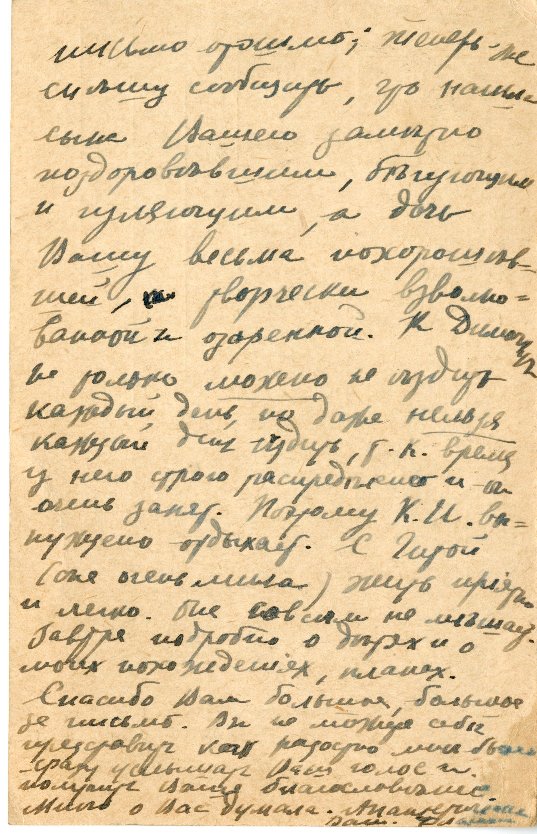 письмо
спѣшу сообщить, что нашла
сына Вашего замѣтно
поздоровѣвшим, бѣгующим
и гуляющим, а дочь
Вашу весьма похорошѣв-
шей, творчески взволно=
ванной и озаренной. К Димочке
не только можно не ѣздить
каждый день, но даже нельзя
каждый день ѣздить, т.к. время
у него строго распредѣлено и он
очень занят. Поэтому К.И. вы-
нужденно отдыхает. С Гитой
(она очень мила) жить приятно
и легко. Она совсем не мѣшает.
Завтра подробно о дѣтях и о
моих похождениях, планах.
Спасибо Вам большое, большое
за письмо. Вы не можете себѣ
представить как радостно мнѣ было
сразу услышать Ваш голос и
получить Ваше благословение.
Много о Вас думала.
Ваша